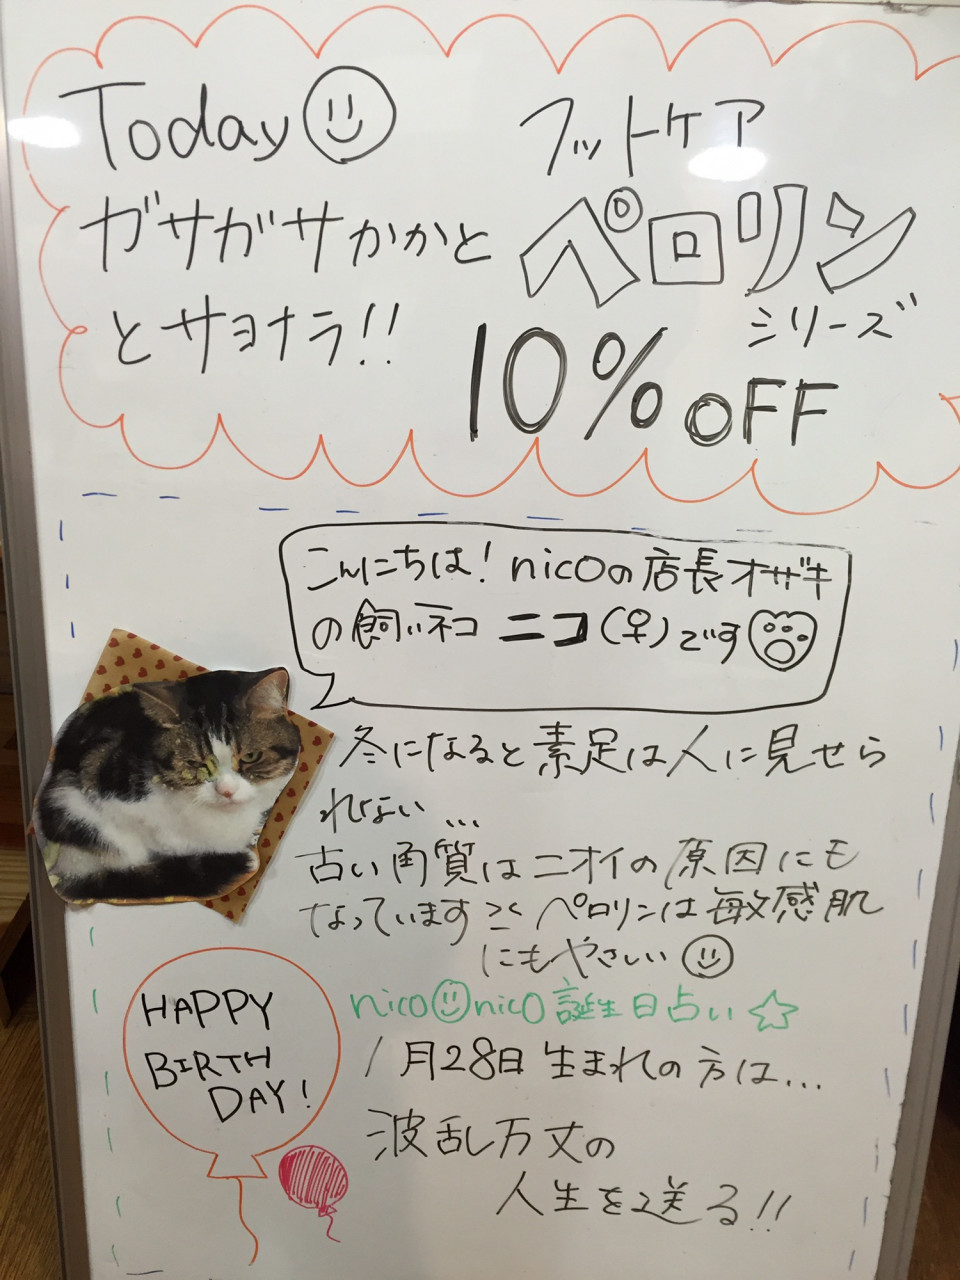 Today
ガサガサかかと
とサヨナラ!!
フットケア
ペロリン
シリーズ
10% OFF
こんにちは! nicoの店長オザキ
の飼いネコ ニコ(♀)です
冬になると素足は人に見せら
れない…
古い角質はニオイの原因にも
なっています ペロリンは敏感肌
にもやさしい
nico nico 誕生日占い☆
1月28日生まれの方は…
波乱万丈の
人生を送る!!
HAPPY
BIRTH
DAY!